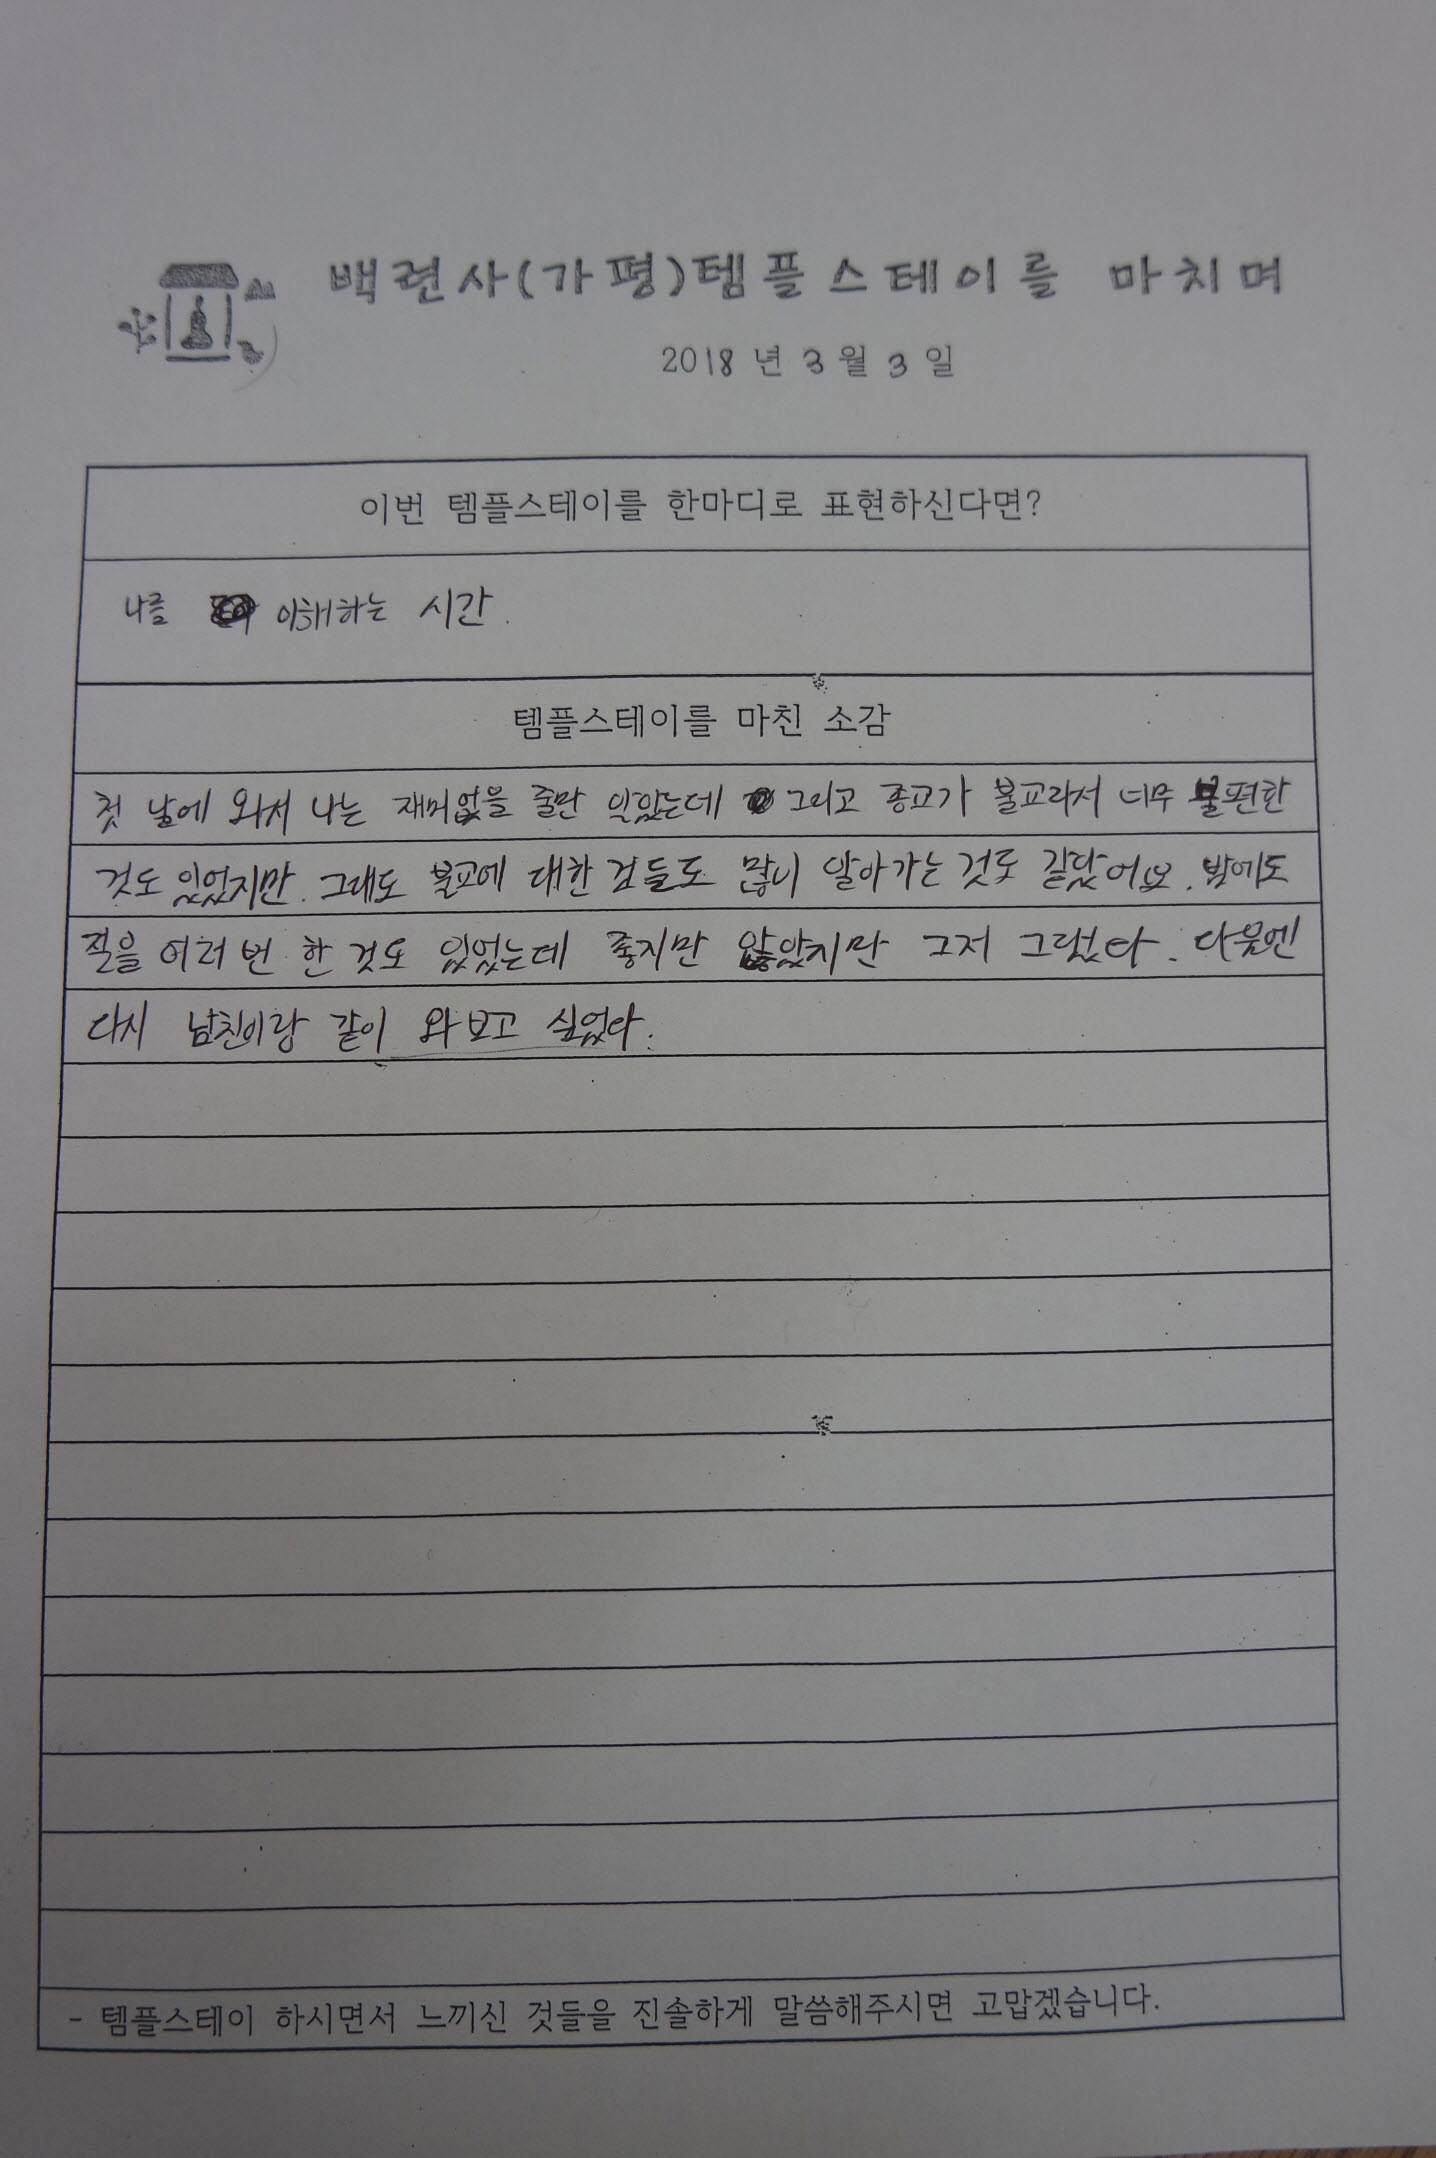 백련사(가평)템플스테이를 마치며
2018 년 3 월 3 일
이번 템플스테이를 한마디로 표현하신다면?
나를 이해하는 시간.
템플스테이를 마친 소감
첫 날에 와서 나는 재미없을 줄만 알았는데 그리고 종교가 불교라서 너무 불편한
것도 있었지만. 그래도 불교에 대한 것들도 많이 알아가는 것도 같았어요. 밖에도
절을 여러 번 한 것도 있었는데 좋지만 않았지만 그저 그랬다. 다음엔
다시 남친이랑 같이 와보고 싶었다.
- 템플스테이 하시면서 느끼신 것들을 진솔하게 말씀해주시면 고맙겠습니다.